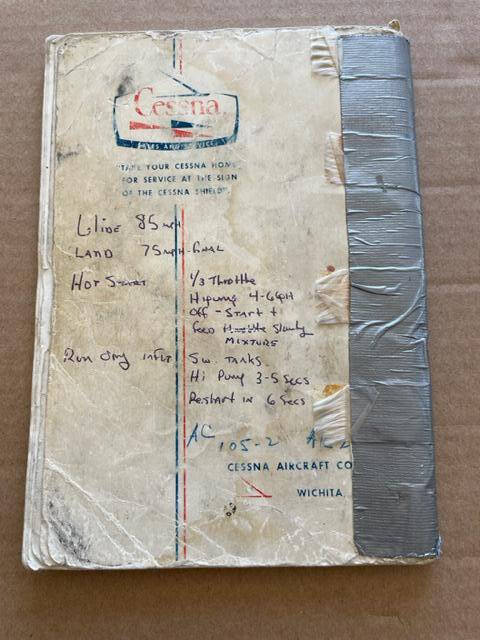 Cessna
SALES AND SERVICE
"TAKE YOUR CESSNA HOME
FOR SERVICE AT THE SIGN
OF THE CESSNA SHIELD".
Glide 85 mph
LAND 75 mph-final
Hot Start 1/3 Throttle
Hi pump 4-6 GPH
Off - Start +
feed slowly
MIXTURE
Run dry inflt Sw. TANKS
Hi Pump 3-5 Secs
Restart in 6 Secs
AC 105-2
CESSNA AIRCRAFT CO
WICHITA,